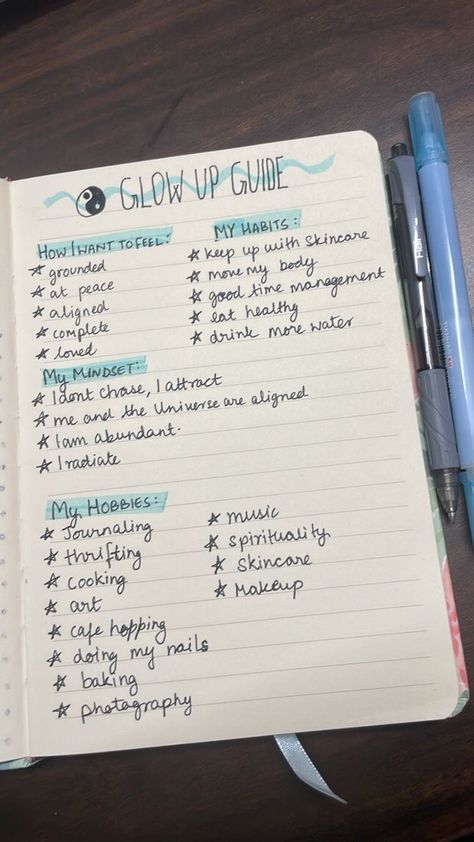 GLOW UP GUIDE
HOW I WANT TO FEEL:
grounded
at peace
aligned
complete
loved
MY HABITS:
keep up with skincare
move my body
good time management
eat healthy
drink more water
MY MINDSET:
I dont chase, I attract
me and the Universe are aligned
I am abundant.
I radiate
MY HOBBIES:
Journaling
thrifting
cooking
art
cafe hopping
doing my nails
baking
photography
music
spirituality
skincare
Makeup